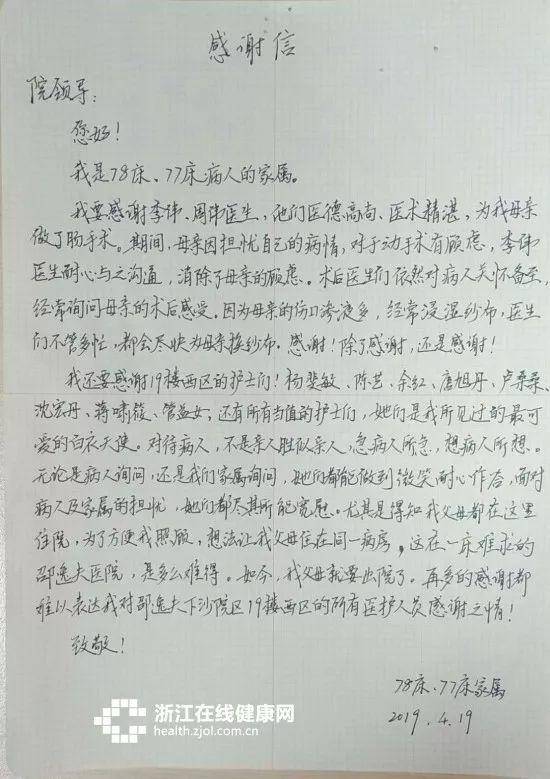 感谢信
院领导：
您好！
我是78床、77床病人的家属。
我要感谢李伟、周伟医生，他们医德高尚、医术精湛，为我母亲
做了肠手术。期间，母亲因担忧自己的病情，对于动手术有顾虑，李伟
医生耐心与之沟通，消除了母亲的顾虑。术后医生们依然对病人关怀备至，
经常询问母亲的术后感受。因为母亲的伤口渗液多，经常浸湿纱布，医生
们不管多忙，都会尽快为母亲换纱布。感谢！除了感谢，还是感谢！
我还要感谢19楼西区的护士们！杨斐敏、陈芸、余红、唐旭丹、卢桑桑、
沈宏丹、蒋啸筱、管益女，还有所有当值的护士们，她们是我所见过的最可
爱的白衣天使。对待病人，不是亲人胜似亲人，急病人所急，想病人所想。
无论是病人询问，还是我们家属询问，她们都能做到微笑耐心作答，面对
病人及家属的担忧，她们都尽其所能宽慰。尤其是得知我父母都在这里
住院，为了方便我照顾，想法让我父母住在同一病房，这在一床难求的
邵逸夫医院，是多么难得。如今，我父母就要出院了。再多的感谢都
难以表达我对邵逸夫下沙院区19楼西区的所有医护人员感谢之情！
致敬！
78床、77床家属
2019.4.19
浙江在线健康网
health.zjol.com.cn